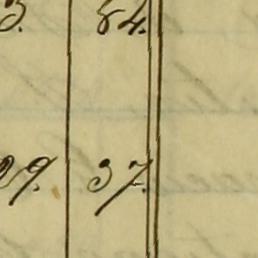 3. 84.
29. 37.